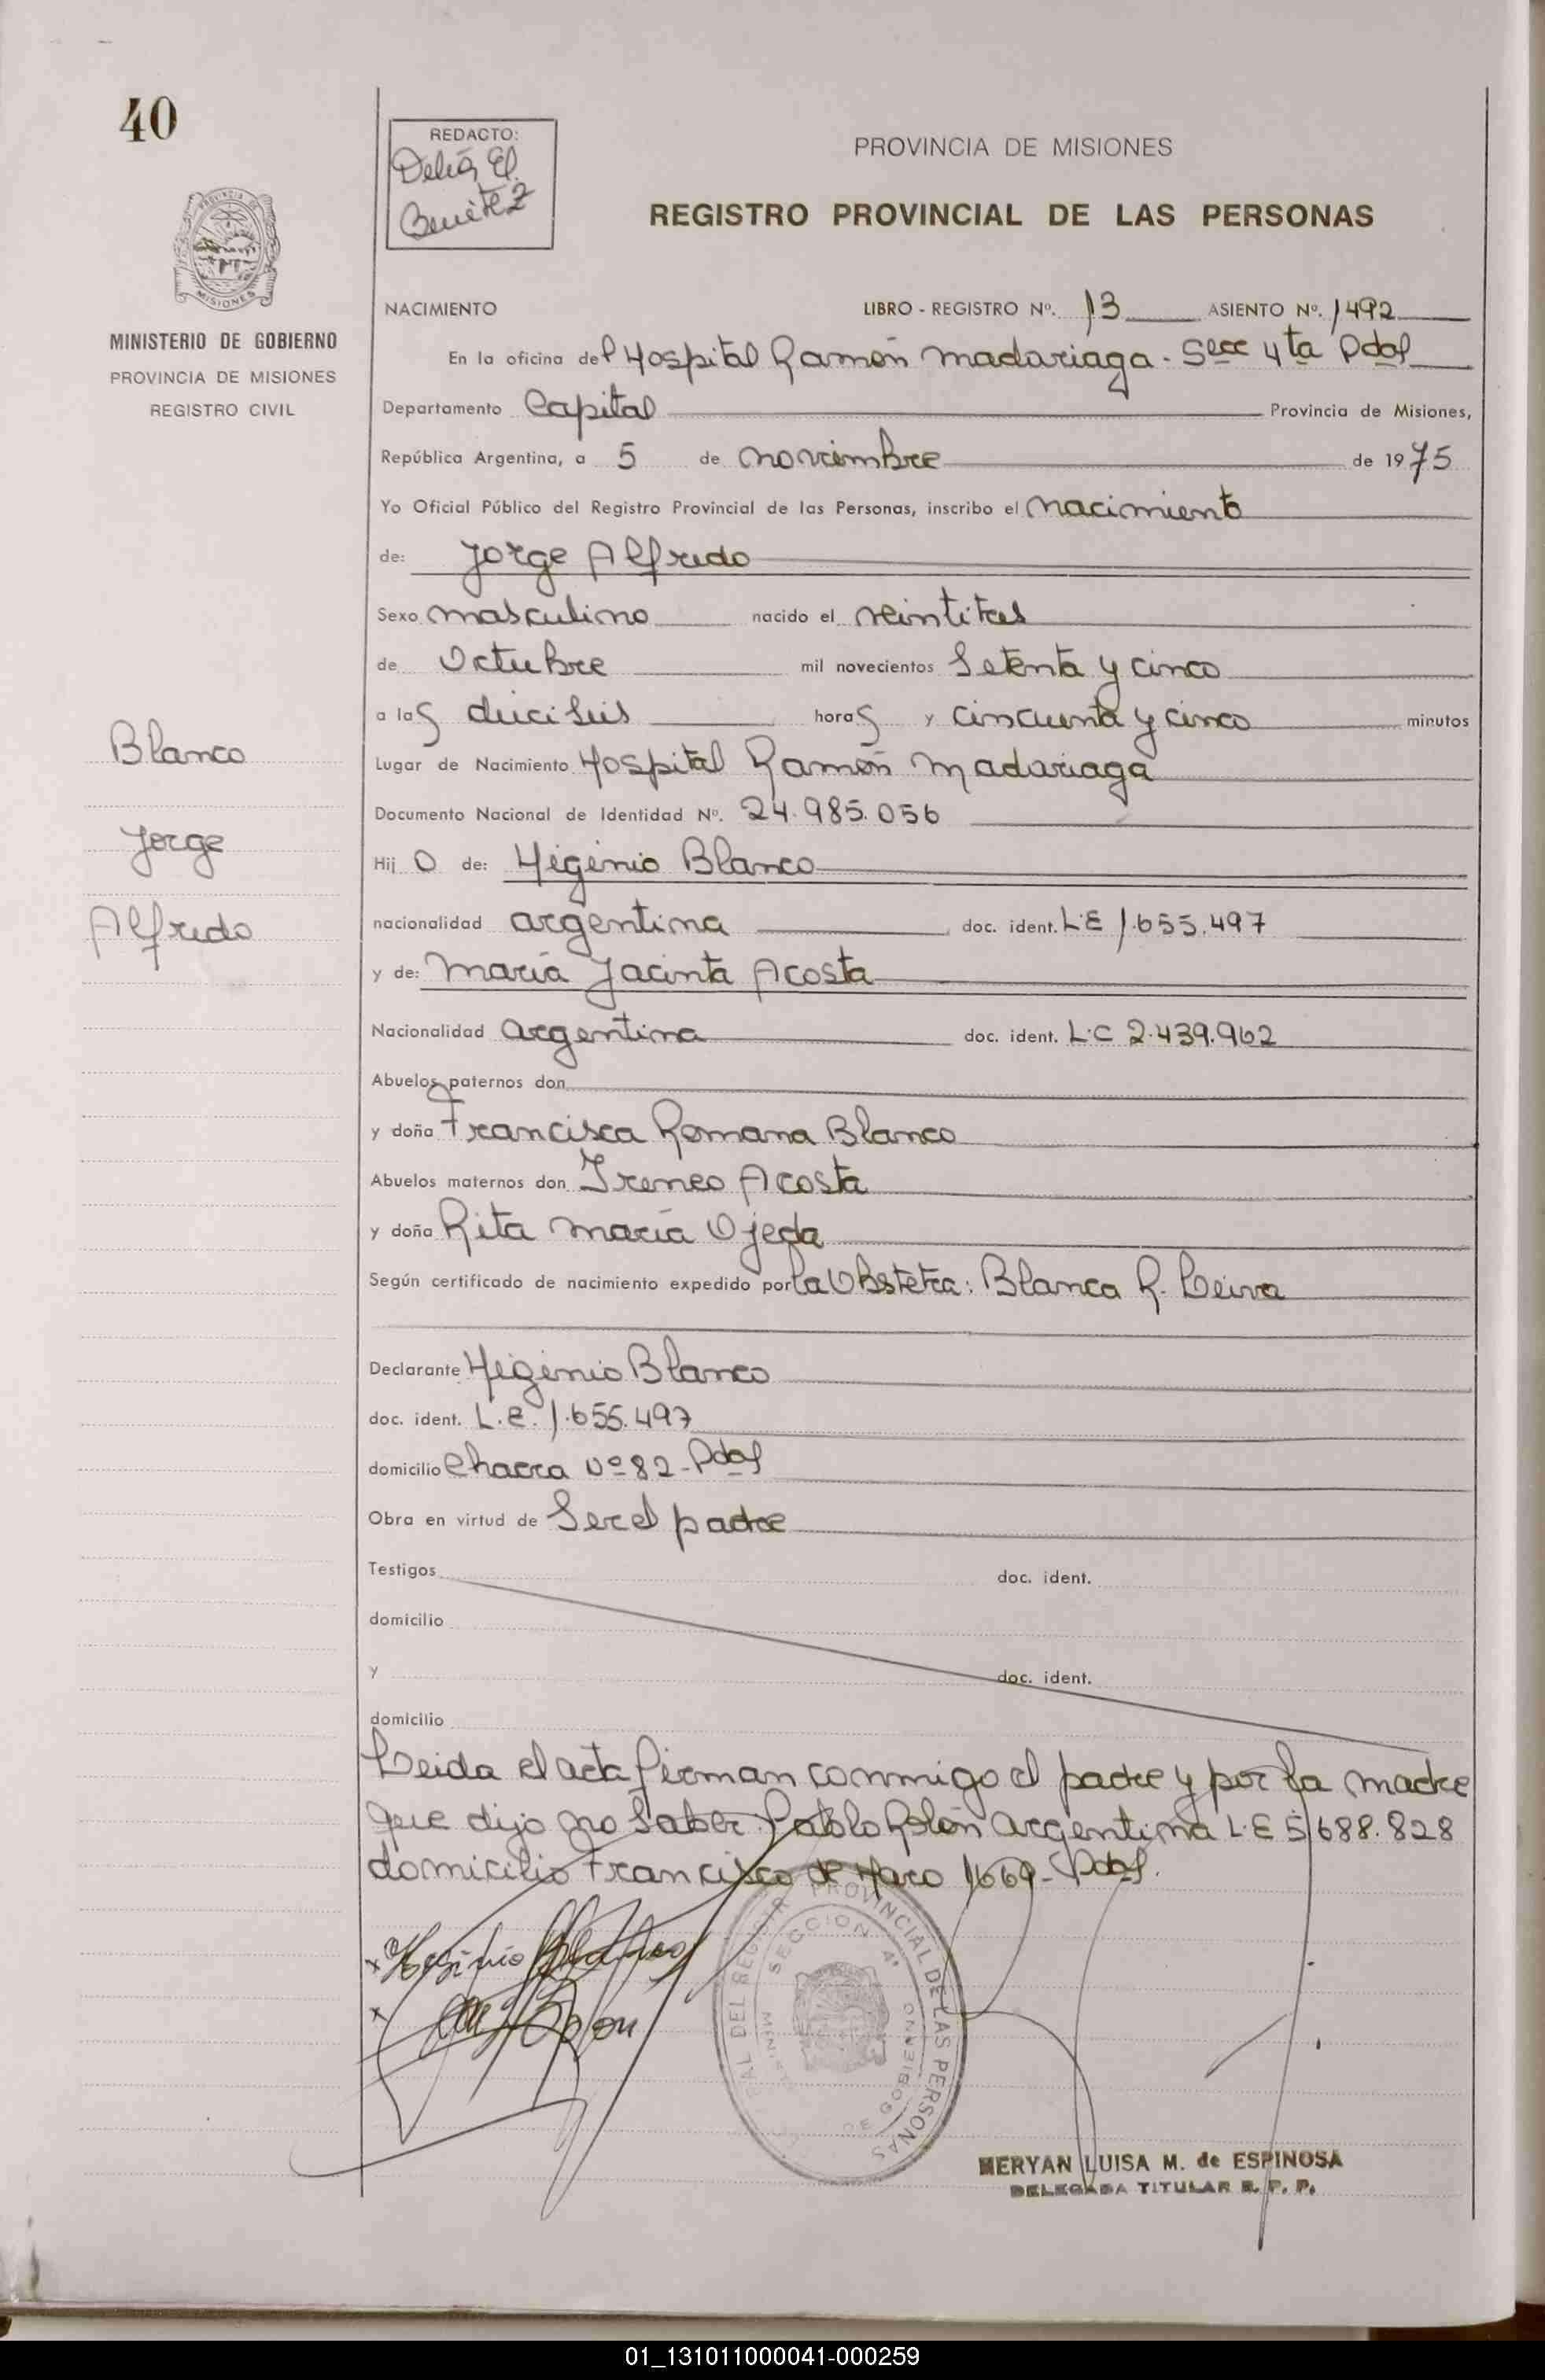 40
REDACTO:
Delia El.
Benitez
PROVINCIA DE MISIONES
REGISTRO PROVINCIAL DE LAS PERSONAS
MISIONES
MINISTERIO DE GOBIERNO
PROVINCIA DE MISIONES
REGISTRO CIVIL
NACIMIENTO LIBRO - REGISTRO Nº. 13 ASIENTO Nº. 1492
En la oficina del Hospital Ramón Madariaga - Secc 4ta Pdas
Departamento Capital Provincia de Misiones,
República Argentina, a 5 de noviembre de 1975
Yo Oficial Público del Registro Provincial de las Personas, inscribo el nacimiento
de: Jorge Alfredo
Sexo masculino nacido el veintitres
de Octubre mil novecientos Setenta y cinco
a las dieciseis horas y cincuenta y cinco minutos
Lugar de Nacimiento Hospital Ramón Madariaga
Documento Nacional de Identidad Nº. 24.985.056
Hijo de: Higinio Blanco
nacionalidad argentina doc. ident. L.E 1.655.497
y de: María Jacinta Acosta
Nacionalidad argentina doc. ident. L.C 2.439.962
Abuelos paternos don
y doña Francisca Romana Blanco
Abuelos maternos don Ireneo Acosta
y doña Rita María Ojeda
Según certificado de nacimiento expedido por la Obstetra: Blanca R. Leiva
Declarante Higinio Blanco
doc. ident. L.E. 1.655.497
domicilio Chacra Nº 82 - Pdas
Obra en virtud de Ser el padre
Testigos doc. ident.
domicilio
y doc. ident.
domicilio
Leida el acta firman conmigo el padre y por la madre
que dijo no saber Pablo Rolón argentina L.E 5.688.828
domicilio Francisco de Haro 1669 - Pdas.
Blanco
Jorge
Alfredo
Higinio Blanco
Rolon
PROVINCIAL DE LAS PERSONAS
SECCION 4ª
DE GOBIERNO
MERYAN LUISA M. de ESPINOSA
DELEGADA TITULAR R. P. P.
01_131011000041-000259